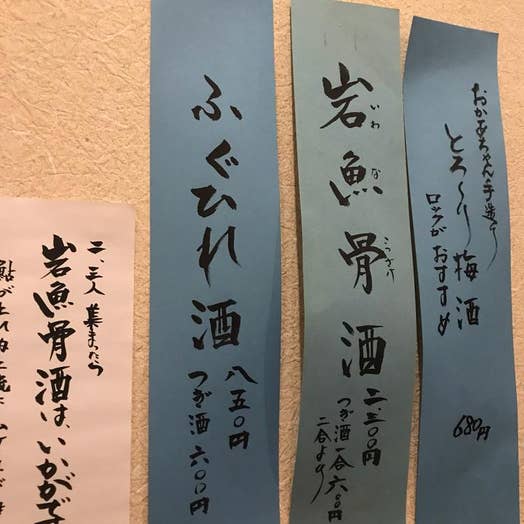 おかあちゃん手造り
とろ〜り梅酒
ロックがおすすめ
680円
岩魚骨酒
いわな
こつざけ
二、三〇〇円
つぎ酒一合六〇〇円
二合より
ふぐひれ酒
八五〇円
つぎ酒六〇〇円
二、三人集まったら
岩魚骨酒は、いかがです
鮎が